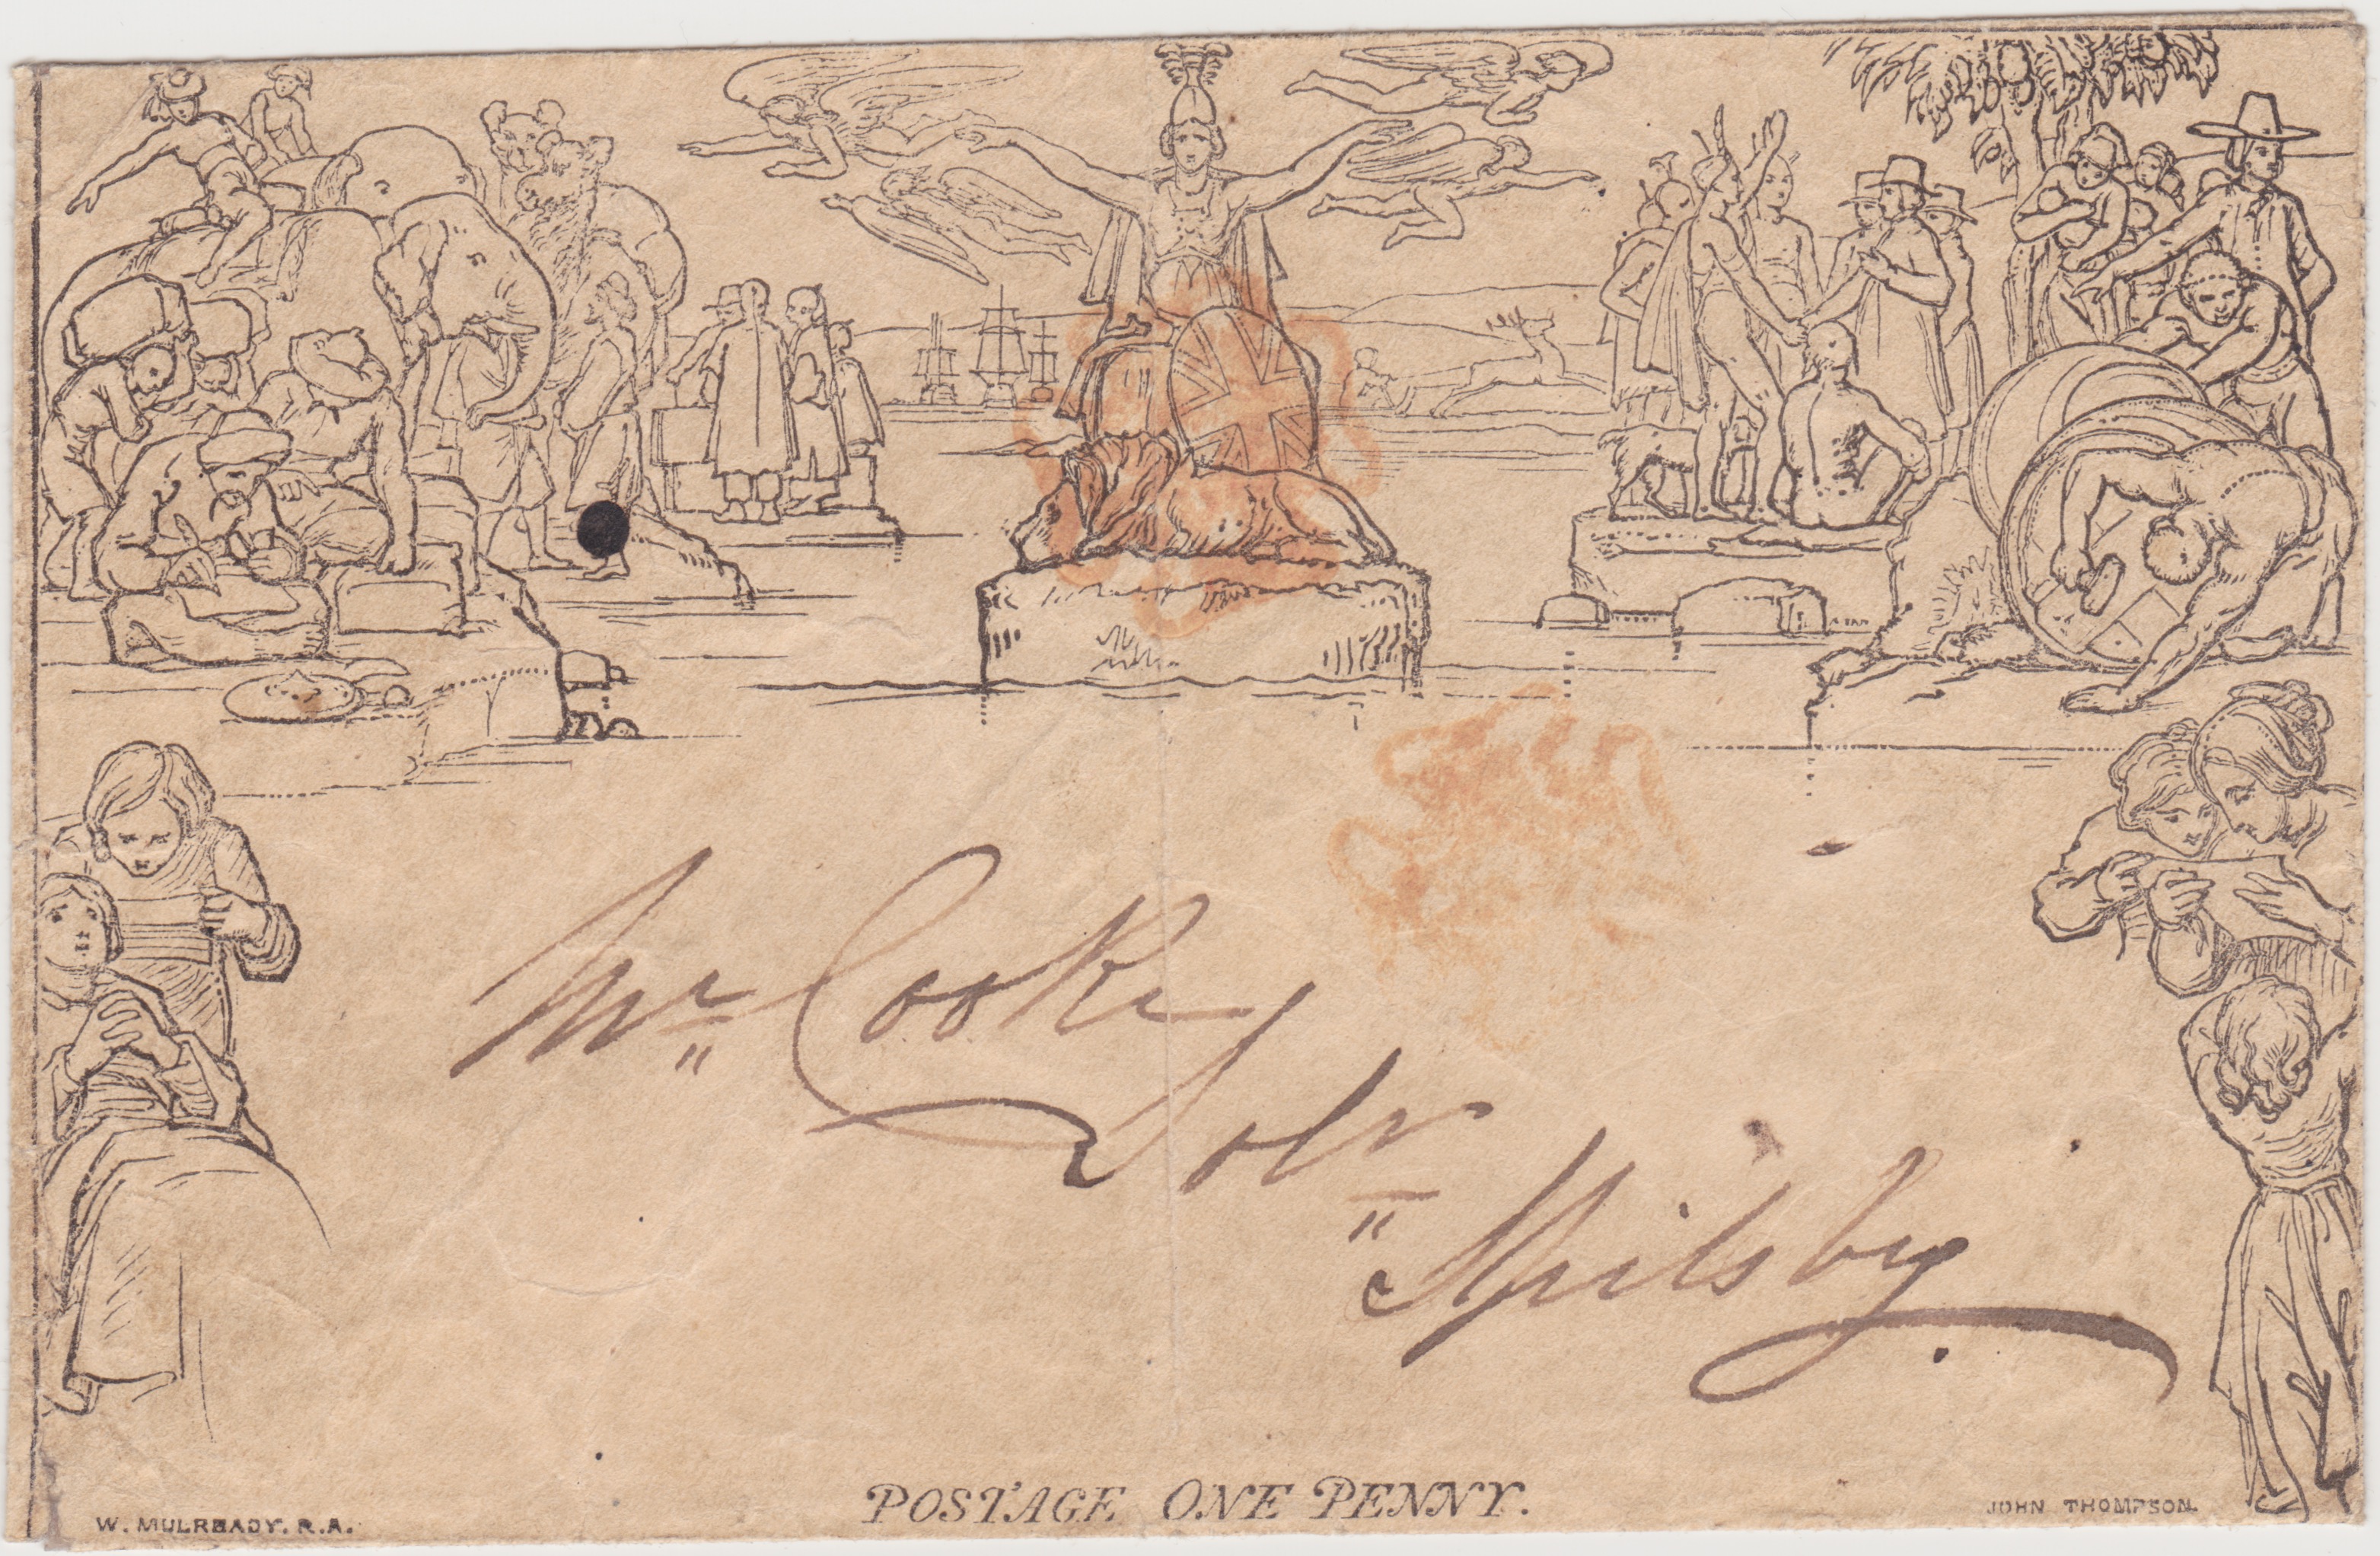 Mr Cooke
Solr
Spilsby
POSTAGE ONE PENNY.
W. MULREADY. R.A.
JOHN THOMPSON.